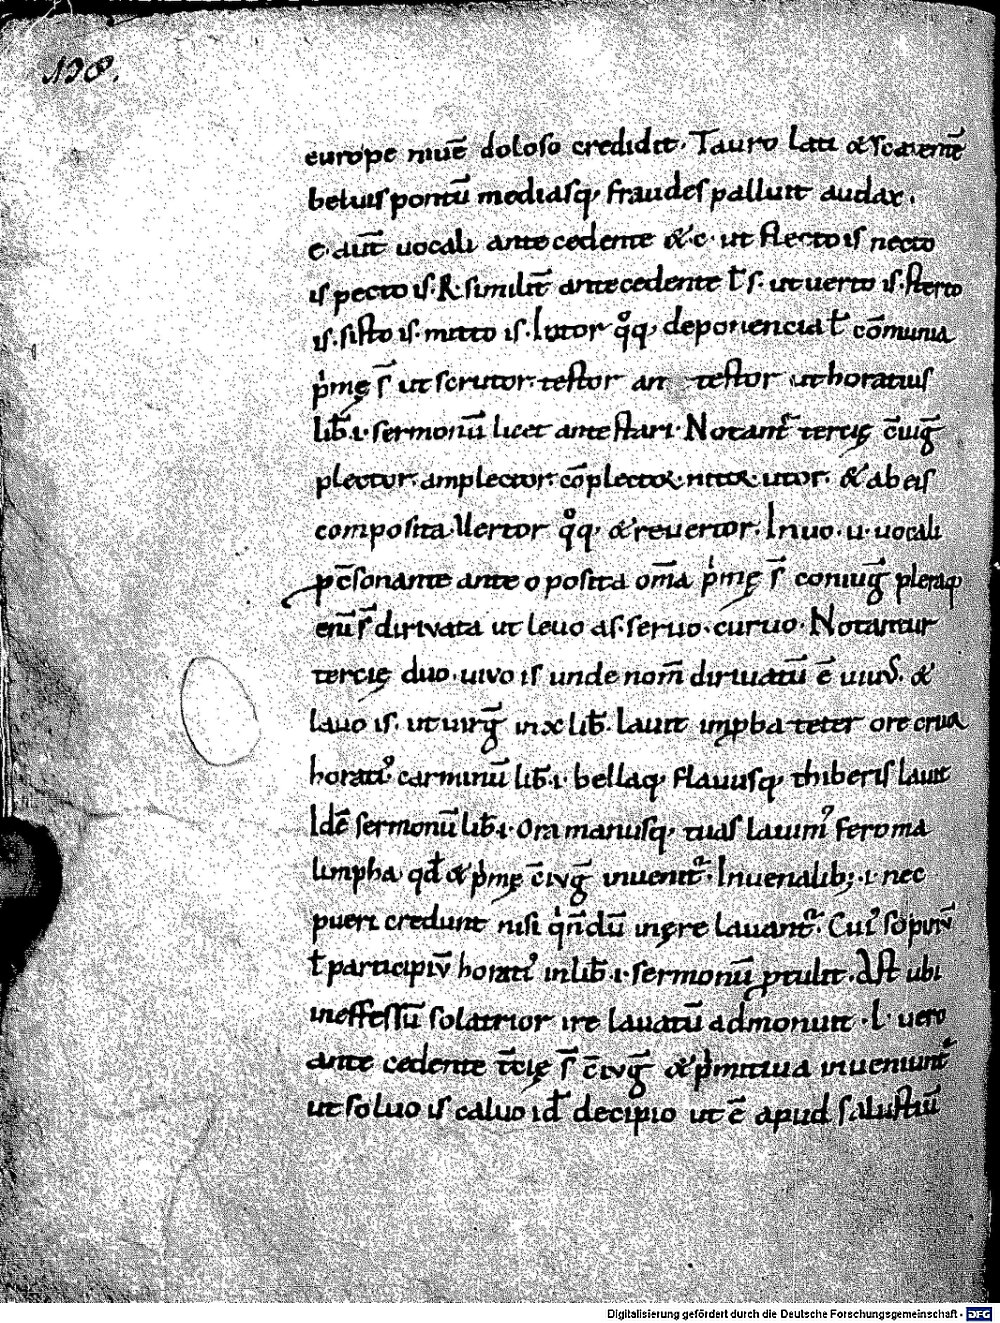 198.
europe niuē doloso credidit. Tauro lat⁊ & scatentē
beluis pontū mediasq; fraudes palluit audax.
c aut̄ uocali antecedente &.c. ut flecto is necto
is pecto is. R similit̄ antecedente ł s. ut uerto is. sterto
is. sisto is. mitto is. lutor qͦq; deponencia ł cōmunia
p̍mę s̄ ut scrutor. testor an testor ut horatius
lib̄.i. sermonū licet antestari. Notant᷒ tercię c̄iug̅
plector. amplector. cōplector. nitor. utor. & ab eis
composita. Uertor qͦq; & reuertor. In uo. u. uocali
p c̄sonante ante o posita om̄a p̍mę s̄ coniug̅ pleraq;
eni̅ s̄ diriuata ut leuo as. seruo. curuo. Notantur
tercię duo. uiuo is unde nom̄ diriuatū ē uiuus. &
lauo is. ut uirg̅ in x lib̄. lauit impba teter ore cruor
horati᷒ carminū lib̄.i. bellaq; flauusq; thiberis lauit
Idē sermonū lib̄.i. ora manusq; tuas lauim᷒ feronia
limpha qd̄ & p̍mę c̄iug̅ inuenit᷒. Iuuenalis. i. nec
pueri credunt nisi q̍ nōdū in ęre lauant᷒. Cui᷒ sopinū
ł participiū horati᷒ in lib̄.i. sermonū ptulit. Ast ubi
me fessū sol acrior ire lauatū admonuit. L. uero
ante cedente t̄cię s̄ c̄iug̅ & p̍mitiua inueniunt᷒
ut soluo is caluo id̄ decipio ut ē apud salustiū
Digitalisierung gefördert durch die Deutsche Forschungsgemeinschaft - DFG